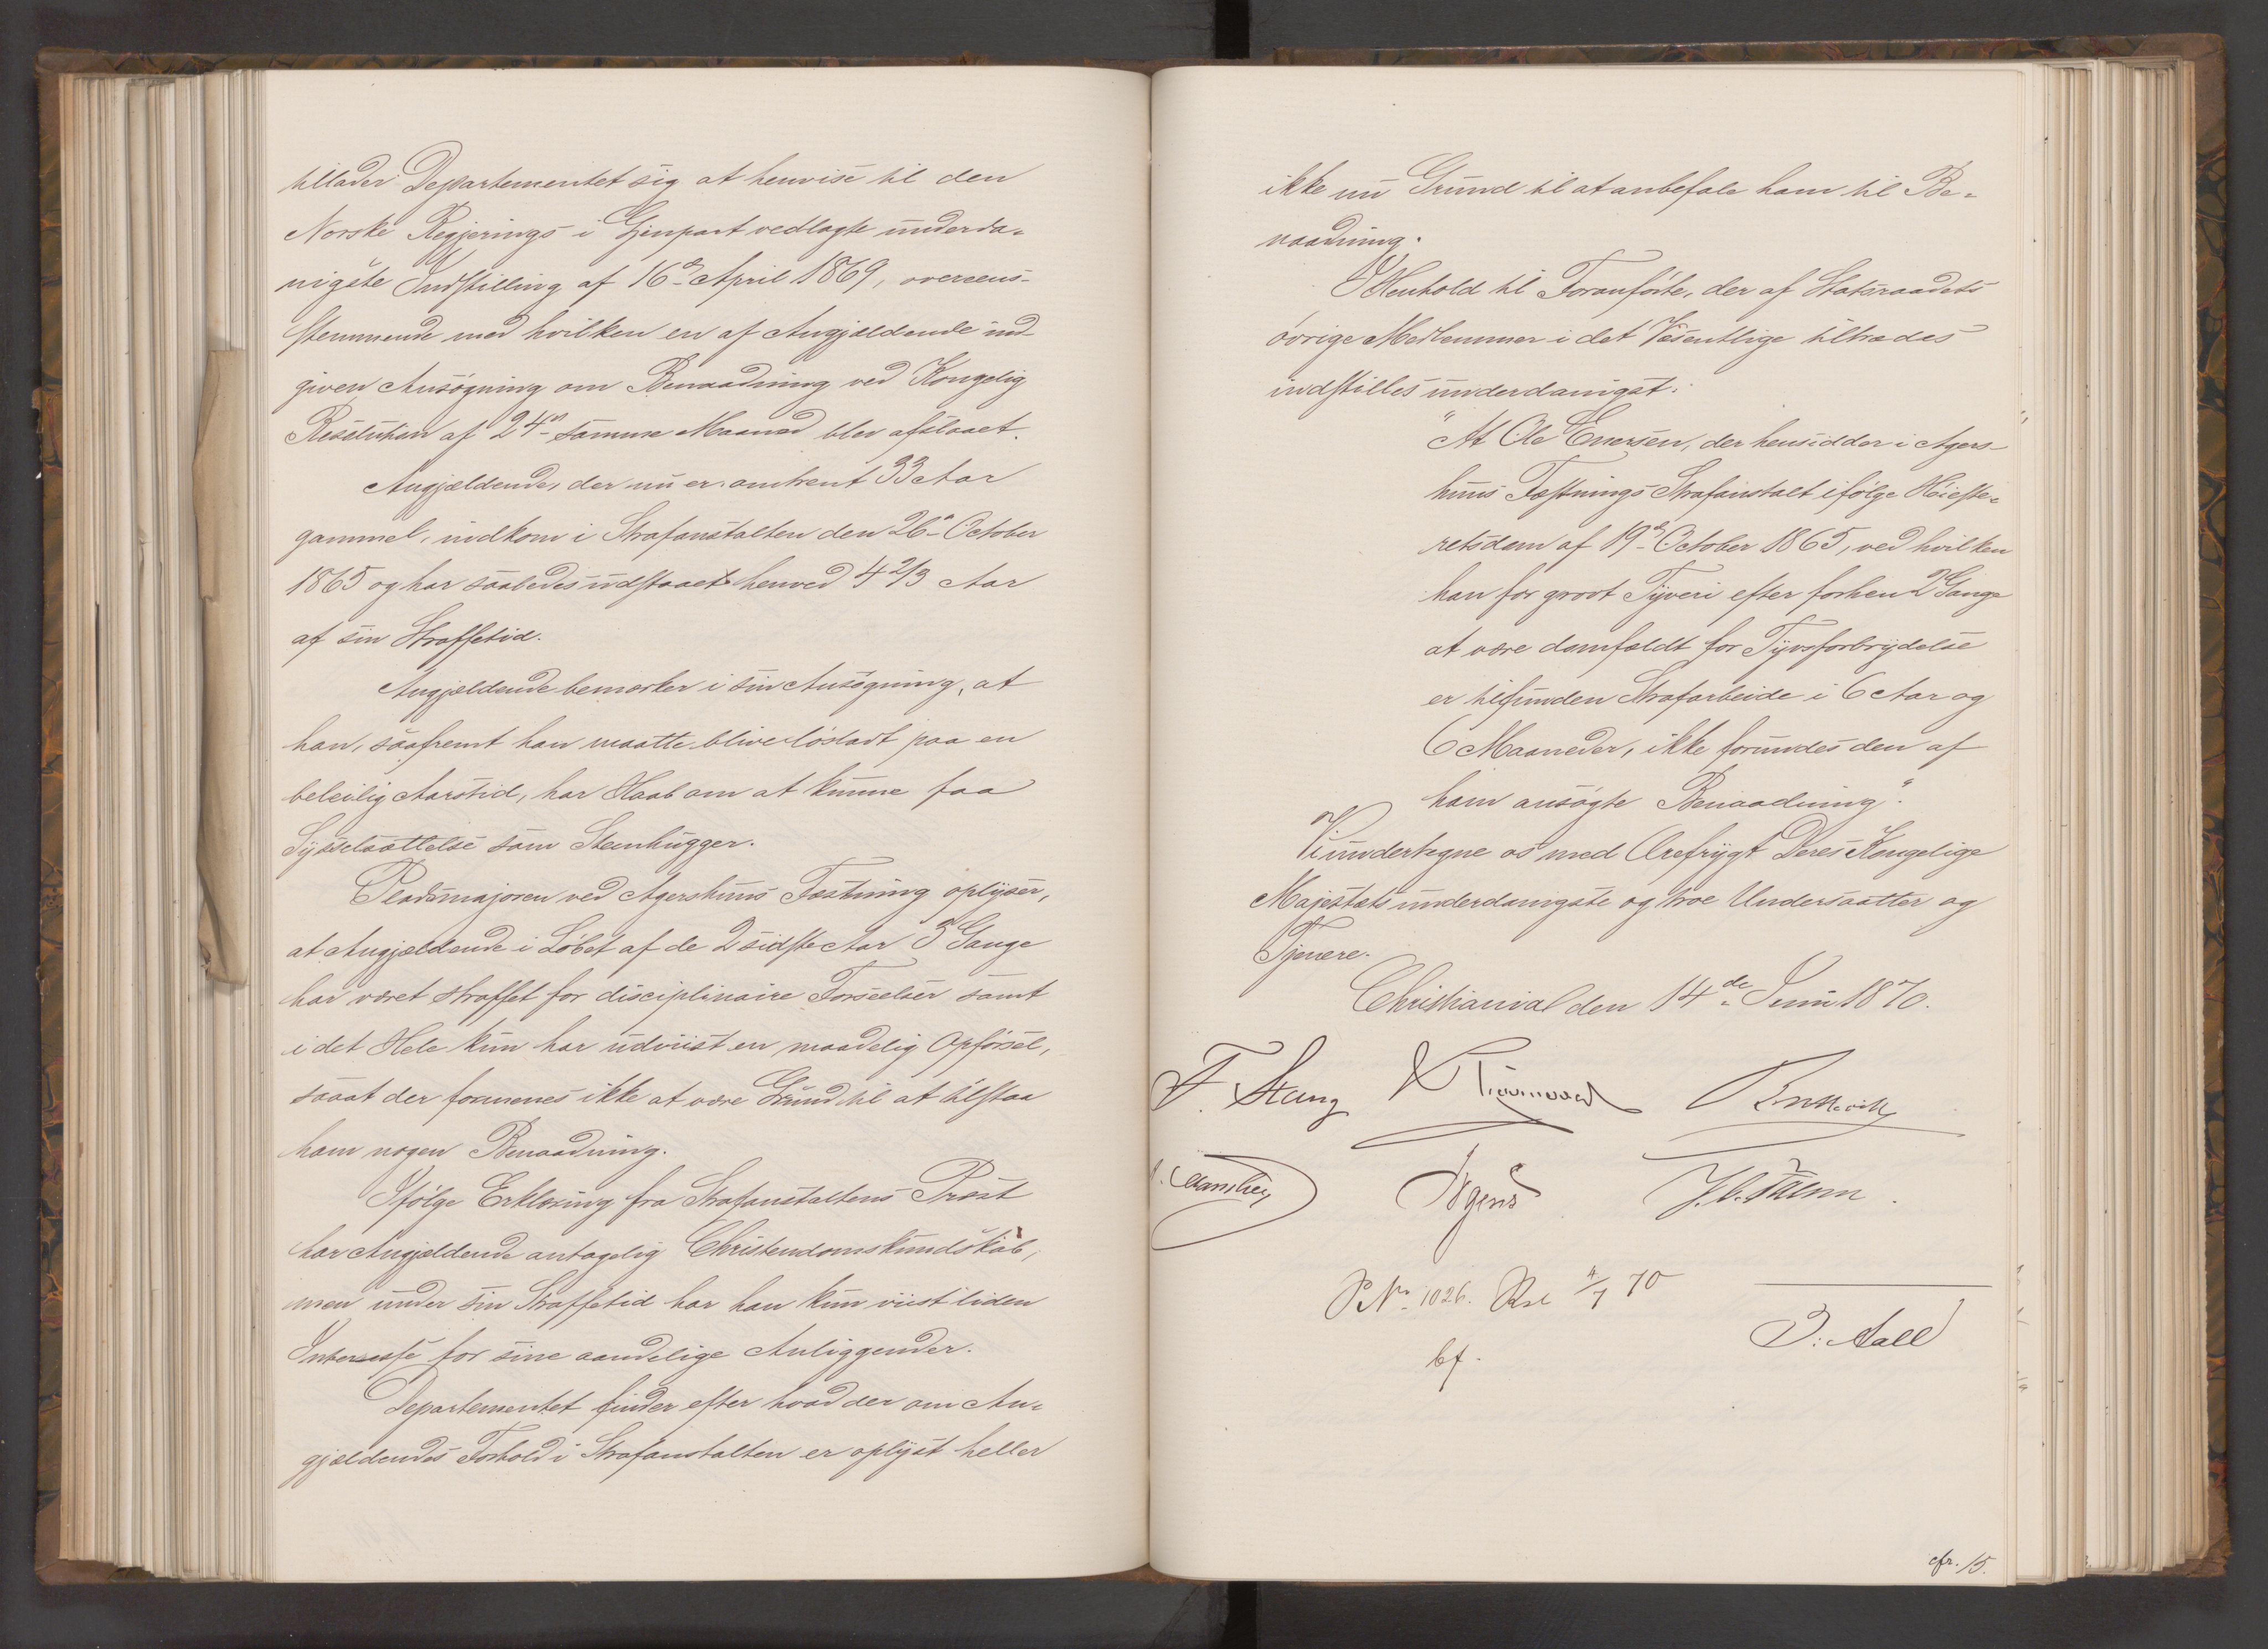 tillader Departementet sig at henvise til den
Norske Regjerings i Gjenpart vedlagte underda-
nigste Indstilling af 16de April 1869, overeens-
stemmende med hvilken en af Angjældende ind-
given Ansøgning om Benaadning ved Kongelig
Resolution af 24de samme Maaned blev afslaaet.
Angjældende, der nu er omtrent 33 Aar
gammel, indkom i Strafanstalten den 26de October
1865 og har saaledes udstaaet henved 4 2/3 Aar
af sin Straffetid.
Angjældende bemærker i sin Ansøgning, at
han, saafremt han maatte blive løsladt paa en
beleilig Aarstid, har Haab om at kunne faa
Sysselsættelse som Stenhugger.
Pladsmajoren ved Agershuus Fæstning oplyser,
at Angjældende i Løbet af de 2 sidste Aar 3 Gange
har været straffet for disciplinaire Forseelser samt
i det Hele kun har udviist en maadelig Opførsel,
saaat der formenes ikke at være Grund til at tilstaa
ham nogen Benaadning.
Ifølge Erklæring fra Strafanstaltens Præst
har Angjældende antagelig Christendomskundskab,
men under sin Straffetid har han kun viist liden
Interesse for sine aandelige Anliggender.
Departementet finder efter hvad der om An-
gjældendes Forhold i Strafanstalten er oplyst heller
ikke nu Grund til at anbefale ham til Be-
naadning.
I Henhold til Foranførte, der af Statsraadets
øvrige Medlemmer i det Væsentlige tiltrædes
indstilles underdanigst:
"At Ole Enersen, der hensidder i Agers-
huus Fæstnings Strafanstalt ifølge Høieste-
retsdom af 19de October 1865, ved hvilken
han for groot Tyveri efter forhen 2 Gange
at være domfældt for Tyvsforbrydelse
er tilfunden Strafarbeide i 6 Aar og
6 Maaneder, ikke forundes den af
ham ansøgte Benaadning".
Vi undertegne os med Ærefrygt Deres Kongelige
Majestæts underdanigste og troe Undersaatter og
Tjenere.
Christiania den 14de Juni 1870.
F. Stang
Irgens
P No 1026. Rsl 4/7 70
bf.
J. Aall
cfr. 15.